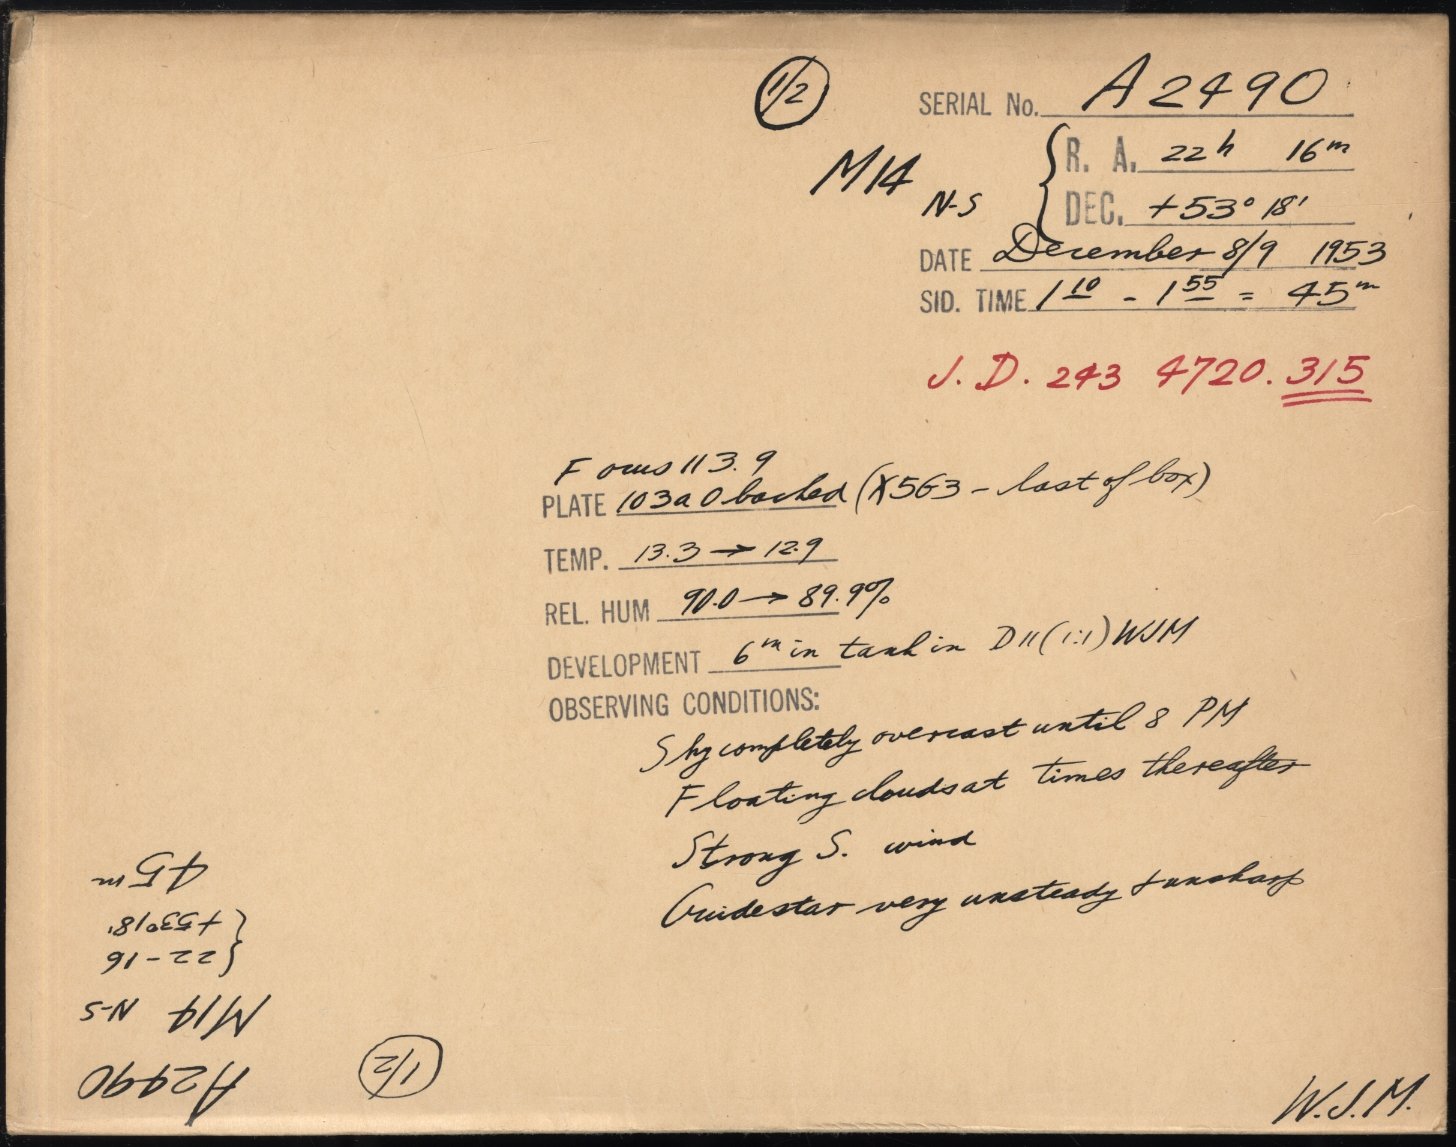 1/2
SERIAL No. A2490
M14 N-S
R. A. 22h 16m
DEC. +53° 18'
DATE December 8/9 1953
SID. TIME 1 10 - 1 55 = 45m
J. D. 243 4720.315
Focus 113.9
PLATE 103a O backed (X563 - last of box)
TEMP. 13.3 → 12.9
REL. HUM 90.0 → 89.9%
DEVELOPMENT 6m in tank in D11 (1:1) WJM
OBSERVING CONDITIONS:
Sky completely overcast until 8 PM
Floating clouds at times thereafter
Strong S. wind
Guidestar very unsteady & unsharp
W.J.M.
1/2
A2490
M14 N-S
22-16
+53°18'
45m